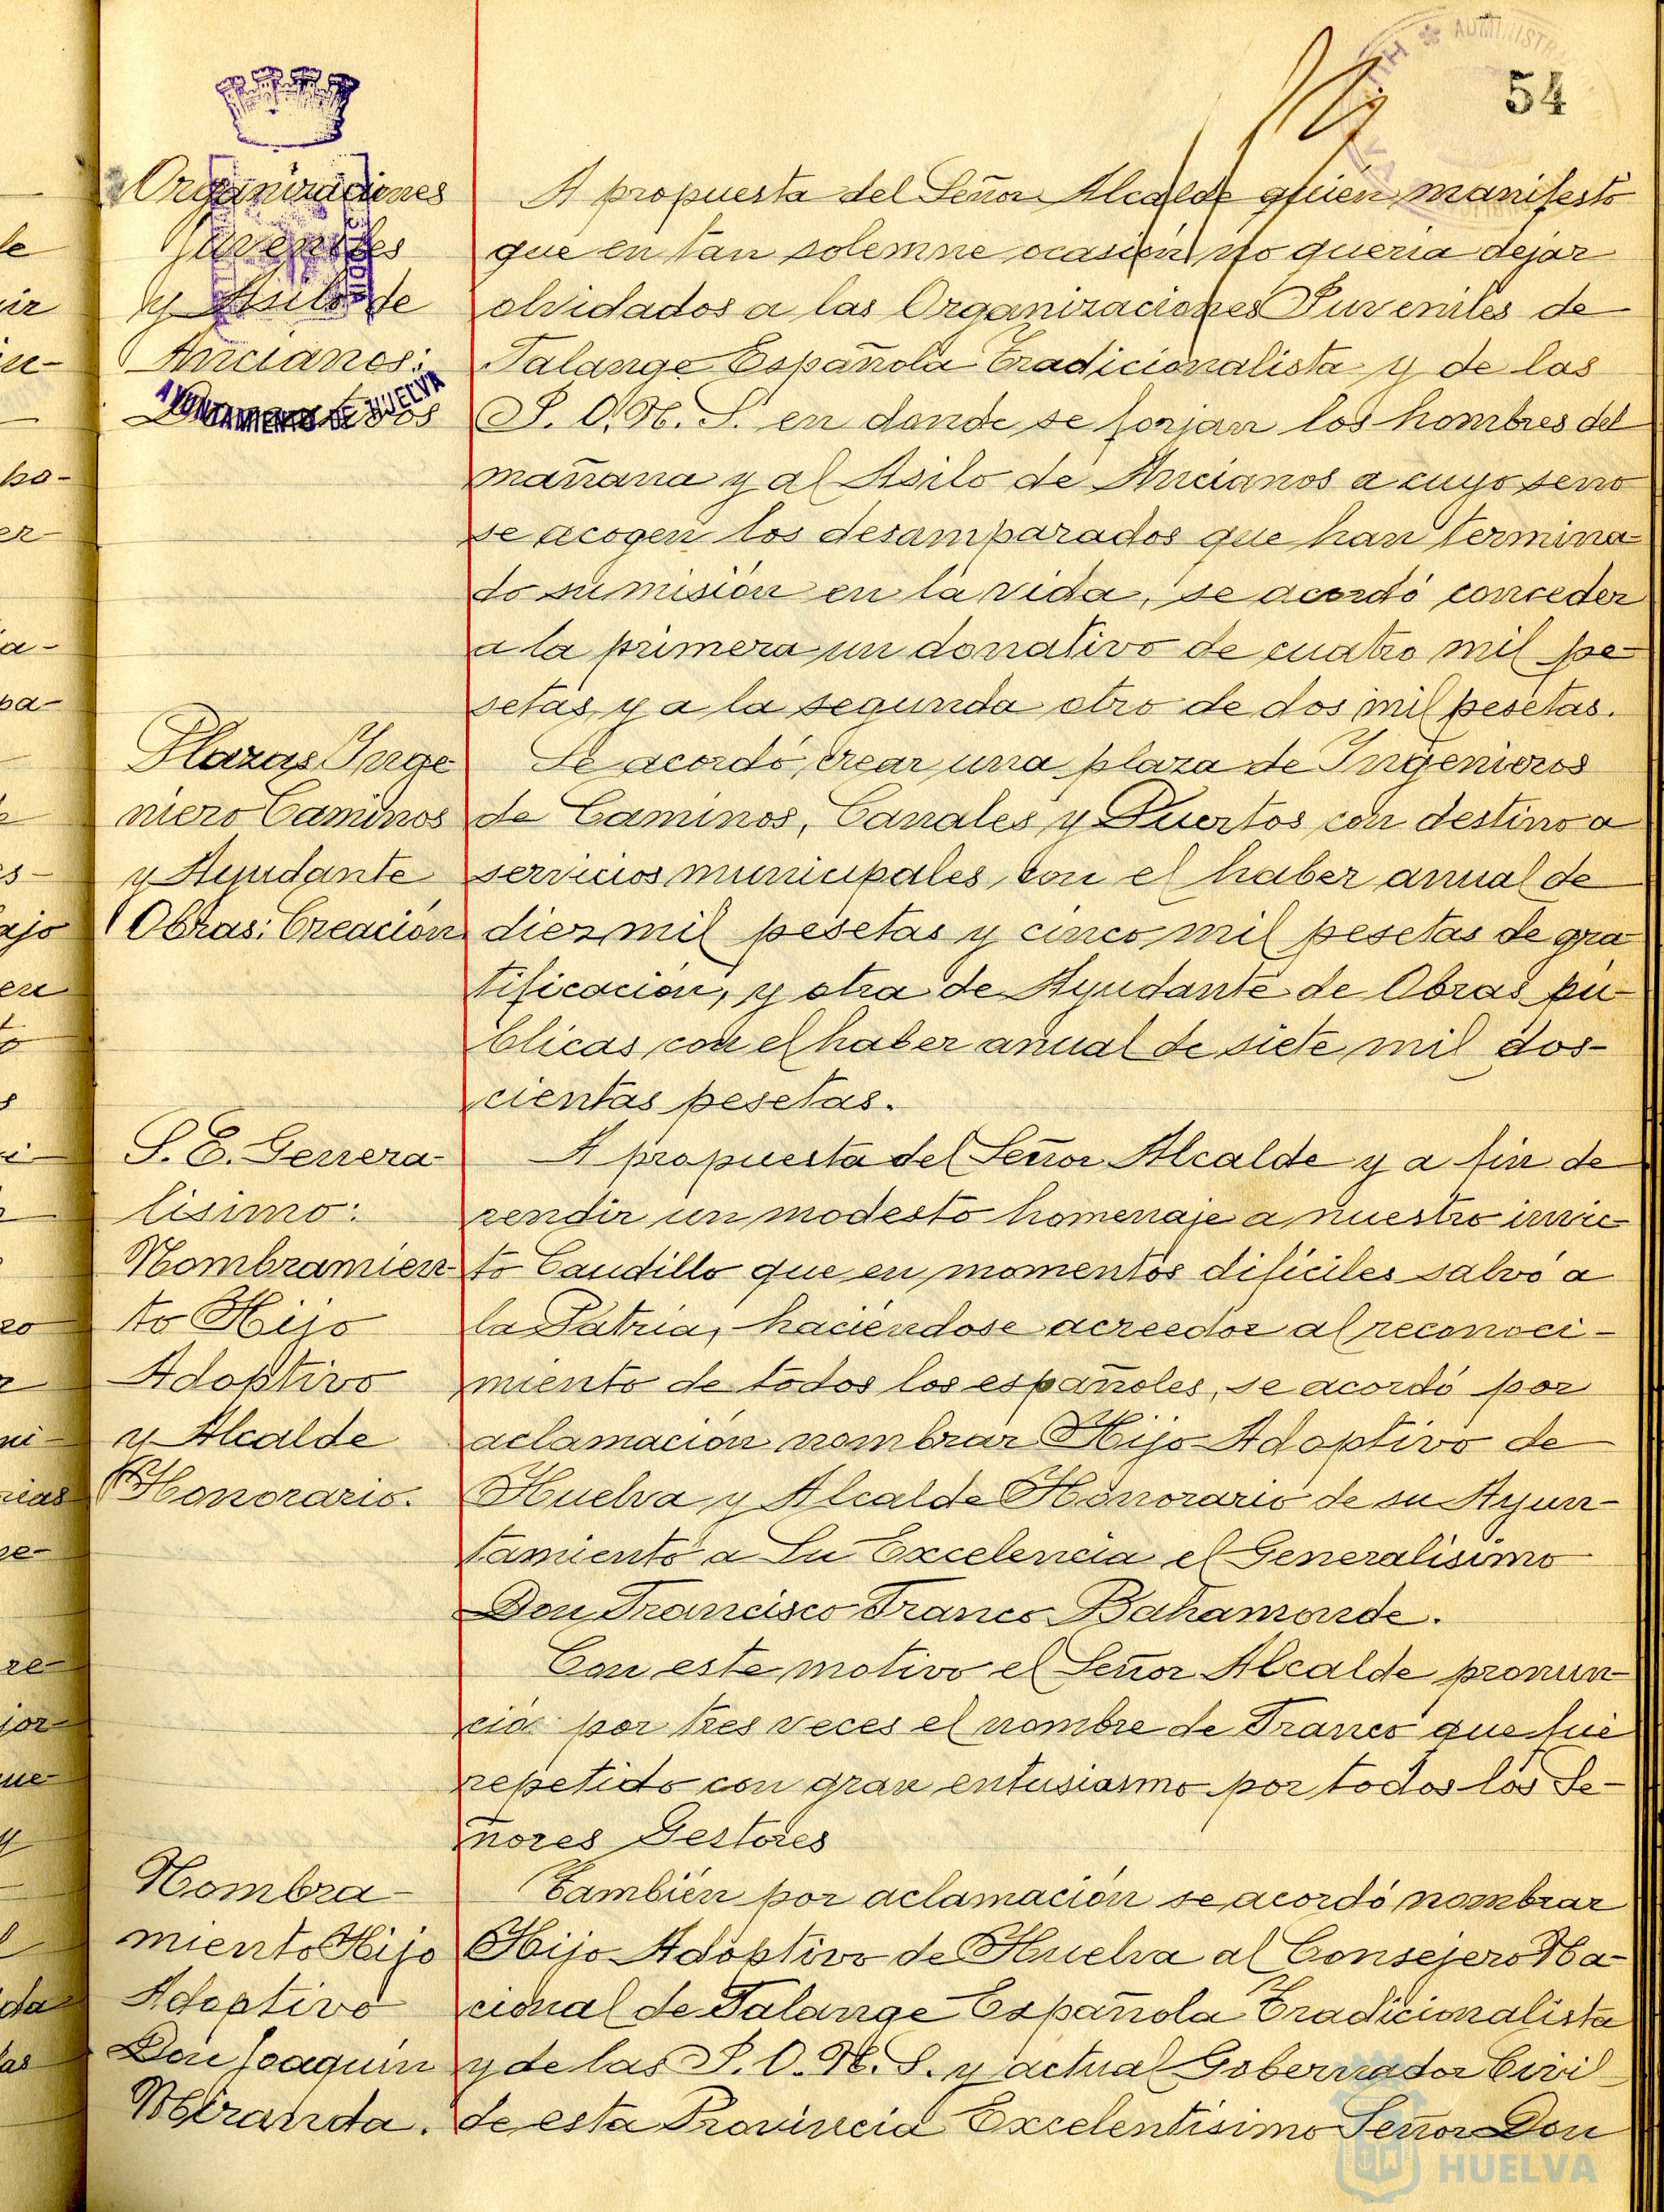 54
Organizaciones
Juveniles
y Asilo de
Ancianos:
AYUNTAMIENTO DE HUELVA
A propuesta del Señor Alcalde quien manifestó
que en tan solemne ocasión no queria dejar
olvidados a las Organizaciones Juveniles de
Falange Española Tradicionalista y de las
J. O. N. S. en donde se forjan los hombres del
mañana y al Asilo de Ancianos a cuyo seno
se acogen los desamparados que han termina-
do su misión en la vida, se acordó conceder
a la primera un donativo de cuatro mil pe-
setas y a la segunda otro de dos mil pesetas.
Plazas Inge
niero Caminos
y Ayudante
Obras: Creación
Se acordó crear una plaza de Ingenieros
de Caminos, Canales y Puertos con destino a
servicios municipales con el haber anual de
diez mil pesetas y cinco mil pesetas de gra
tificación, y otra de Ayudante de Obras pú-
blicas con el haber anual de siete mil dos-
cientas pesetas.
S. E. Genera-
lisimo:
Nombramien-
to Hijo
Adoptivo
y Alcalde
Honorario.
A propuesta del Señor Alcalde y a fin de
rendir un modesto homenaje a nuestro invic-
to Caudillo que en momentos dificiles salvó a
la Patria, haciéndose acreedor al reconoci-
miento de todos los españoles, se acordó por
aclamación nombrar Hijo Adoptivo de
Huelva y Alcalde Honorario de su Ayun-
tamiento a Su Excelencia el Generalisimo
Don Francisco Franco Bahamonde.
Con este motivo el Señor Alcalde pronun-
ció por tres veces el nombre de Franco que fué
repetido con gran entusiasmo por todos los Se-
ñores Gestores
Nombra-
miento Hijo
Adoptivo
Don Joaquín
Miranda.
También por aclamación se acordó nombrar
Hijo Adoptivo de Huelva al Consejero Na-
cional de Falange Española Tradicionalista
y de las J. O. N. S. y actual Gobernador Civil
de esta Provincia Excelentísimo Señor Don
HUELVA